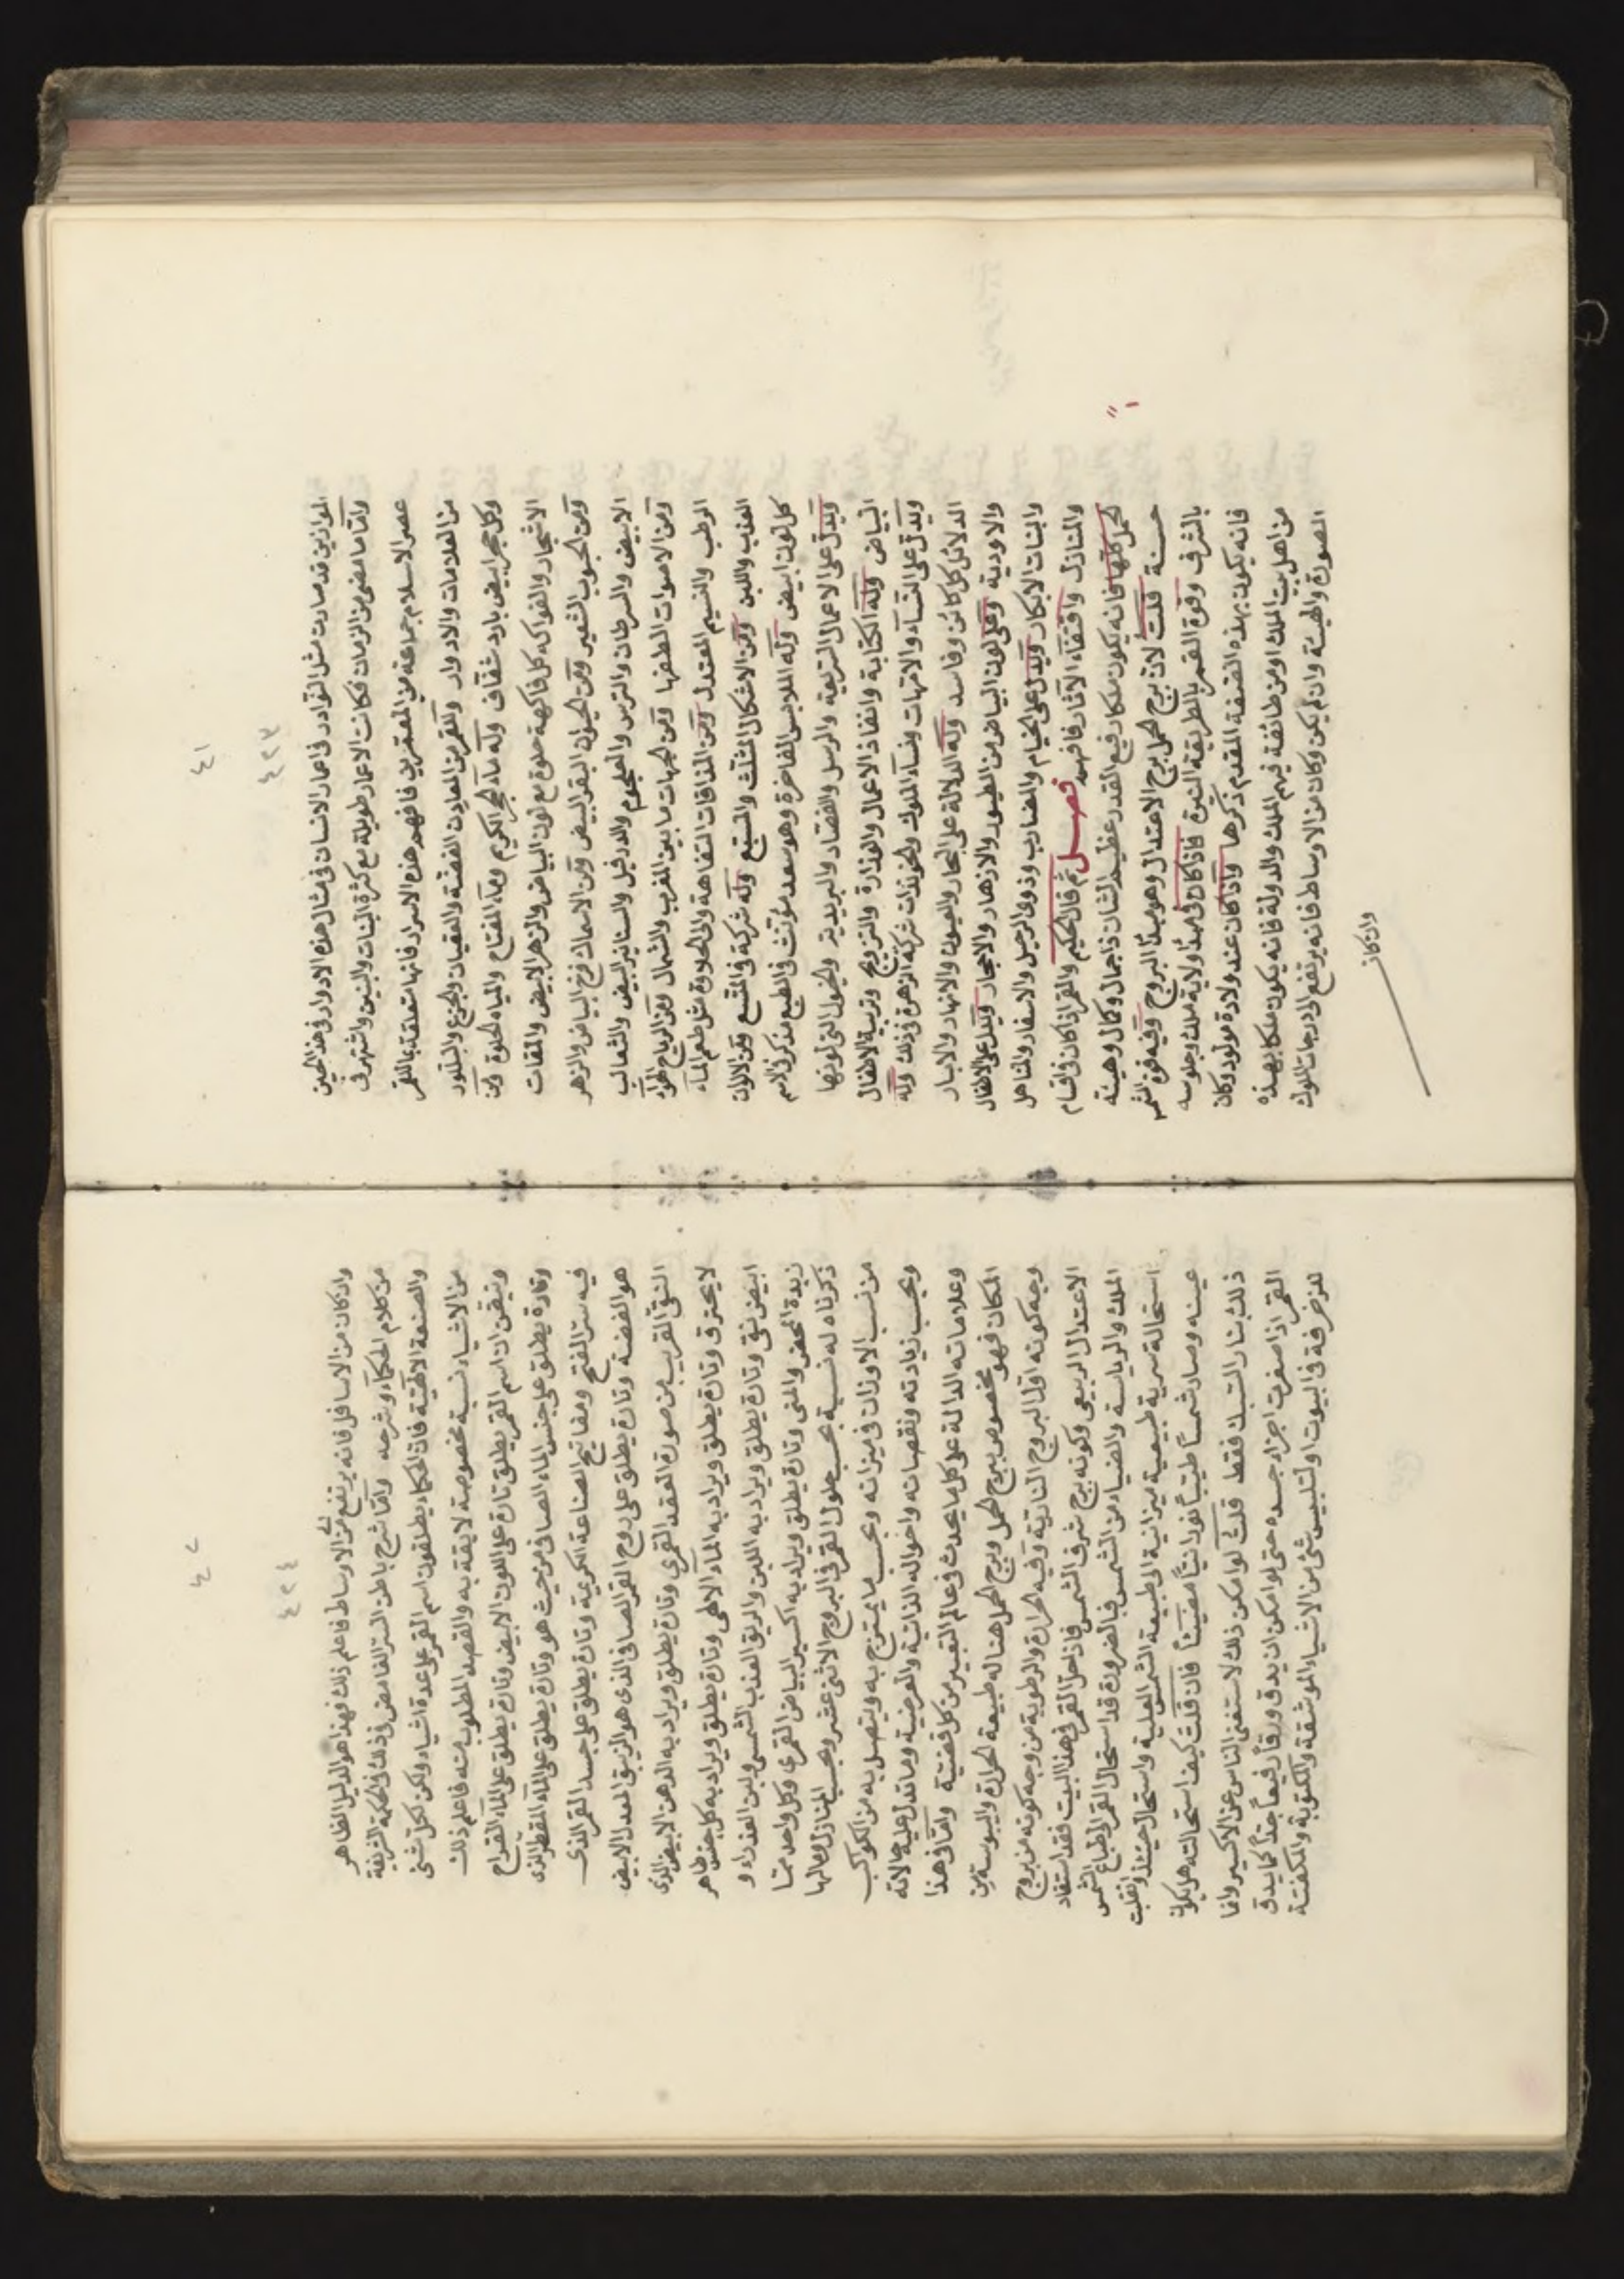 ٤١
٤٢٣
الموازين قد صارت مثل النوادر في اعمار الانسان في مثال هذه الادوار في هذا الحين
واما ما مضى من الزمان فكانت الاعمار طويلة مع كثرة البنات والبنين واشتهر في
عصر الاسلام جماعة من المعمرين فافهم هذه الاسرار فانها متعلقة بالقمر
من العلامات والادوار وللقمر من المعادن الفضة والعقيان والجزع والبللور
وكل حجر ابيض بارد شفاف وله ماء الحجر الكريم وماء المفتاح والمياه الحلوة ومن
الاشجار والفواكه كل فاكهة حلوة مع لون البياض والزهر الابيض والمقات
ومن الحبوب الشعير ومن الحيوان البقر البيض ومن الاسماك فرخ البياض والزهر
الابيض والسرطان والترس والعلجوم والدرفيل والسنانير البيض والثعالب
ومن الاصوات الطفها ومن الجهات ما بين المغرب والشمال ومن الرياح الهواء
الرطب والنسيم المعتدل ومن المذاقات التفاهة والى الحلاوة مثل طعم الماء
العذب واللبن ومن الاشكال المثلث والمسبع وله شركة في المتسع ومن الالوان
كل لون ابيض وله الملابس الفاخرة وهو سعد مؤنث في الطبع مذكر في الاسم
ويدل على الاعمال السريعة والرسل والقصاد والبريدية والخيول التي لونها
البياض وله الكتابة وانفاذ الاعمال والوزارة والتزويج وتربية الاطفال
ويدل على النساء والامهات ونساء الملوك والخوندات شركة الزهرة في ذلك وله
الدلائل كل كائن وفاسد وله الدلالة على البحار والعيون والانهار والابار
والاودية وعلى لون البياض من الطيور والازهار والاحجار ويدل على الاطفال
والبنات الابكار ويدل على الخيام والمضارب وذوي الرحيل والاسفار والمناهل
والمنازل واقتفاء الآثار فافهم فصل ثم قال الحكيم والقمر اذا كان في اقسام
الحمل كلها فانه يكون ملكا رفيع القدر عظيم الشان ذا جمال وكمال وهيئة
حسنة قلت لان برج الحمل برج الاعتدال وهو مبدأ البروج وفيه قوة الشمس
بالشرف وقوة القمر بالطريقة النيرة فاذا كان في مبدأ ولاية ملك وجلوسه
فانه يكون بهذه الصفة المقدم ذكرها واذا كان عند ولادة مولود وكان
من اهل بيت الملك او من طائفة فيهم الملك والدولة فانه يكون ملكا بهذه
الصورة والهيئة وان لم يكن وكان من الاوساط فانه يرتفع الى درجات الملوك
وان كان
٤٢
٤٢٤
وان كان من الاسافل فانه يرتفع من الى الاوساط فاعلم ذلك فهذا هو الدليل الظاهر
من كلام الحكماء وشرحه واما شرح باطن السر الغامض في ذلك في الحكمة الشريفة
والصنعة الالهية فان الحكماء يطلقون اسم القمر على عدة اشياء ولكن لكل شئ
من الاشياء نسبة مخصوصة لايقة به والقصد المطلوب منه فاعلم ذلك
وتيقن ان اسم القمر يطلق تارة على اللون الابيض وتارة يطلق على الماء القراح
وتارة يطلق على جنس الماء الصافي من حيث هو وتارة يطلق على الماء المقطر الذي
فيه سر الفتح ومفاتيح الصناعة الكريمة وتارة يطلق على جسد القمر الذي
هو الفضة وتارة يطلق على روح القمر الصافي الذي هو الزيبق المعدل الابيض
النقي القريب من صورة العقد القمري وتارة يطلق ويراد به الدهن الابيض الذي
لا يحترق وتارة يطلق ويراد به الماء الالهي وتارة يطلق ويراد به كل جنس طاهر
ابيض نقي وتارة يطلق ويراد به اللبن والريق العذب الشمس ولبن العذراء و
زبدة المخض والمنى وتارة يطلق ويراد به اكسير البياض القمري وكل واحد مما
ذكرناه له نسبة بحسب حلول القمر في البروج الاثني عشر وبحسب المنازل ومالها
من نسب الاوزان في ميزانه وبحسب ما يمتزج به ويتصل به من الكواكب
وبحسب زيادته ونقصانه واحواله الذاتية والعرضية وما تدل عليه حالاته
وعلاماته الدالة على كل ما يحدث في عالم التغيير من كل قضية واما في هذا
المكان فهو مخصوص ببرج الحمل وبرج الحمل هنا له طبيعة الحرارة واليبوسة من
وجه كونه اول البروج النارية وفيه الحرارة والرطوبة من وجه كونه من بروج
الاعتدال الربيعي وكونه برج شرف الشمس فاذا حل القمر في هذا البيت فقد استفاد
الملك والرياسة والضياء من الشمس فبالضرورة قد استحال القمر الى طباع الشمس
استحالة سرية طبيعية ميزانية الى طبيعة الشمس العلية واستحال حينئذ وانقلبت
عينه وصار شمسا طيبا نورانيا مضيئا فان قلت كيف استحالته هل يكون
ذلك بنار السبك فقط قلت لو امكن ذلك لاستغنى الناس عن الاكسير وانما
القمر اذا صفرت اجزاء جسده حتى لو امكن ان يدق ورقا رفيعا جدا كما يدق
للزخرفة في البيوت او لتلبيس شئ من الاشياء الموشقة والمكتوبة والمكفتة